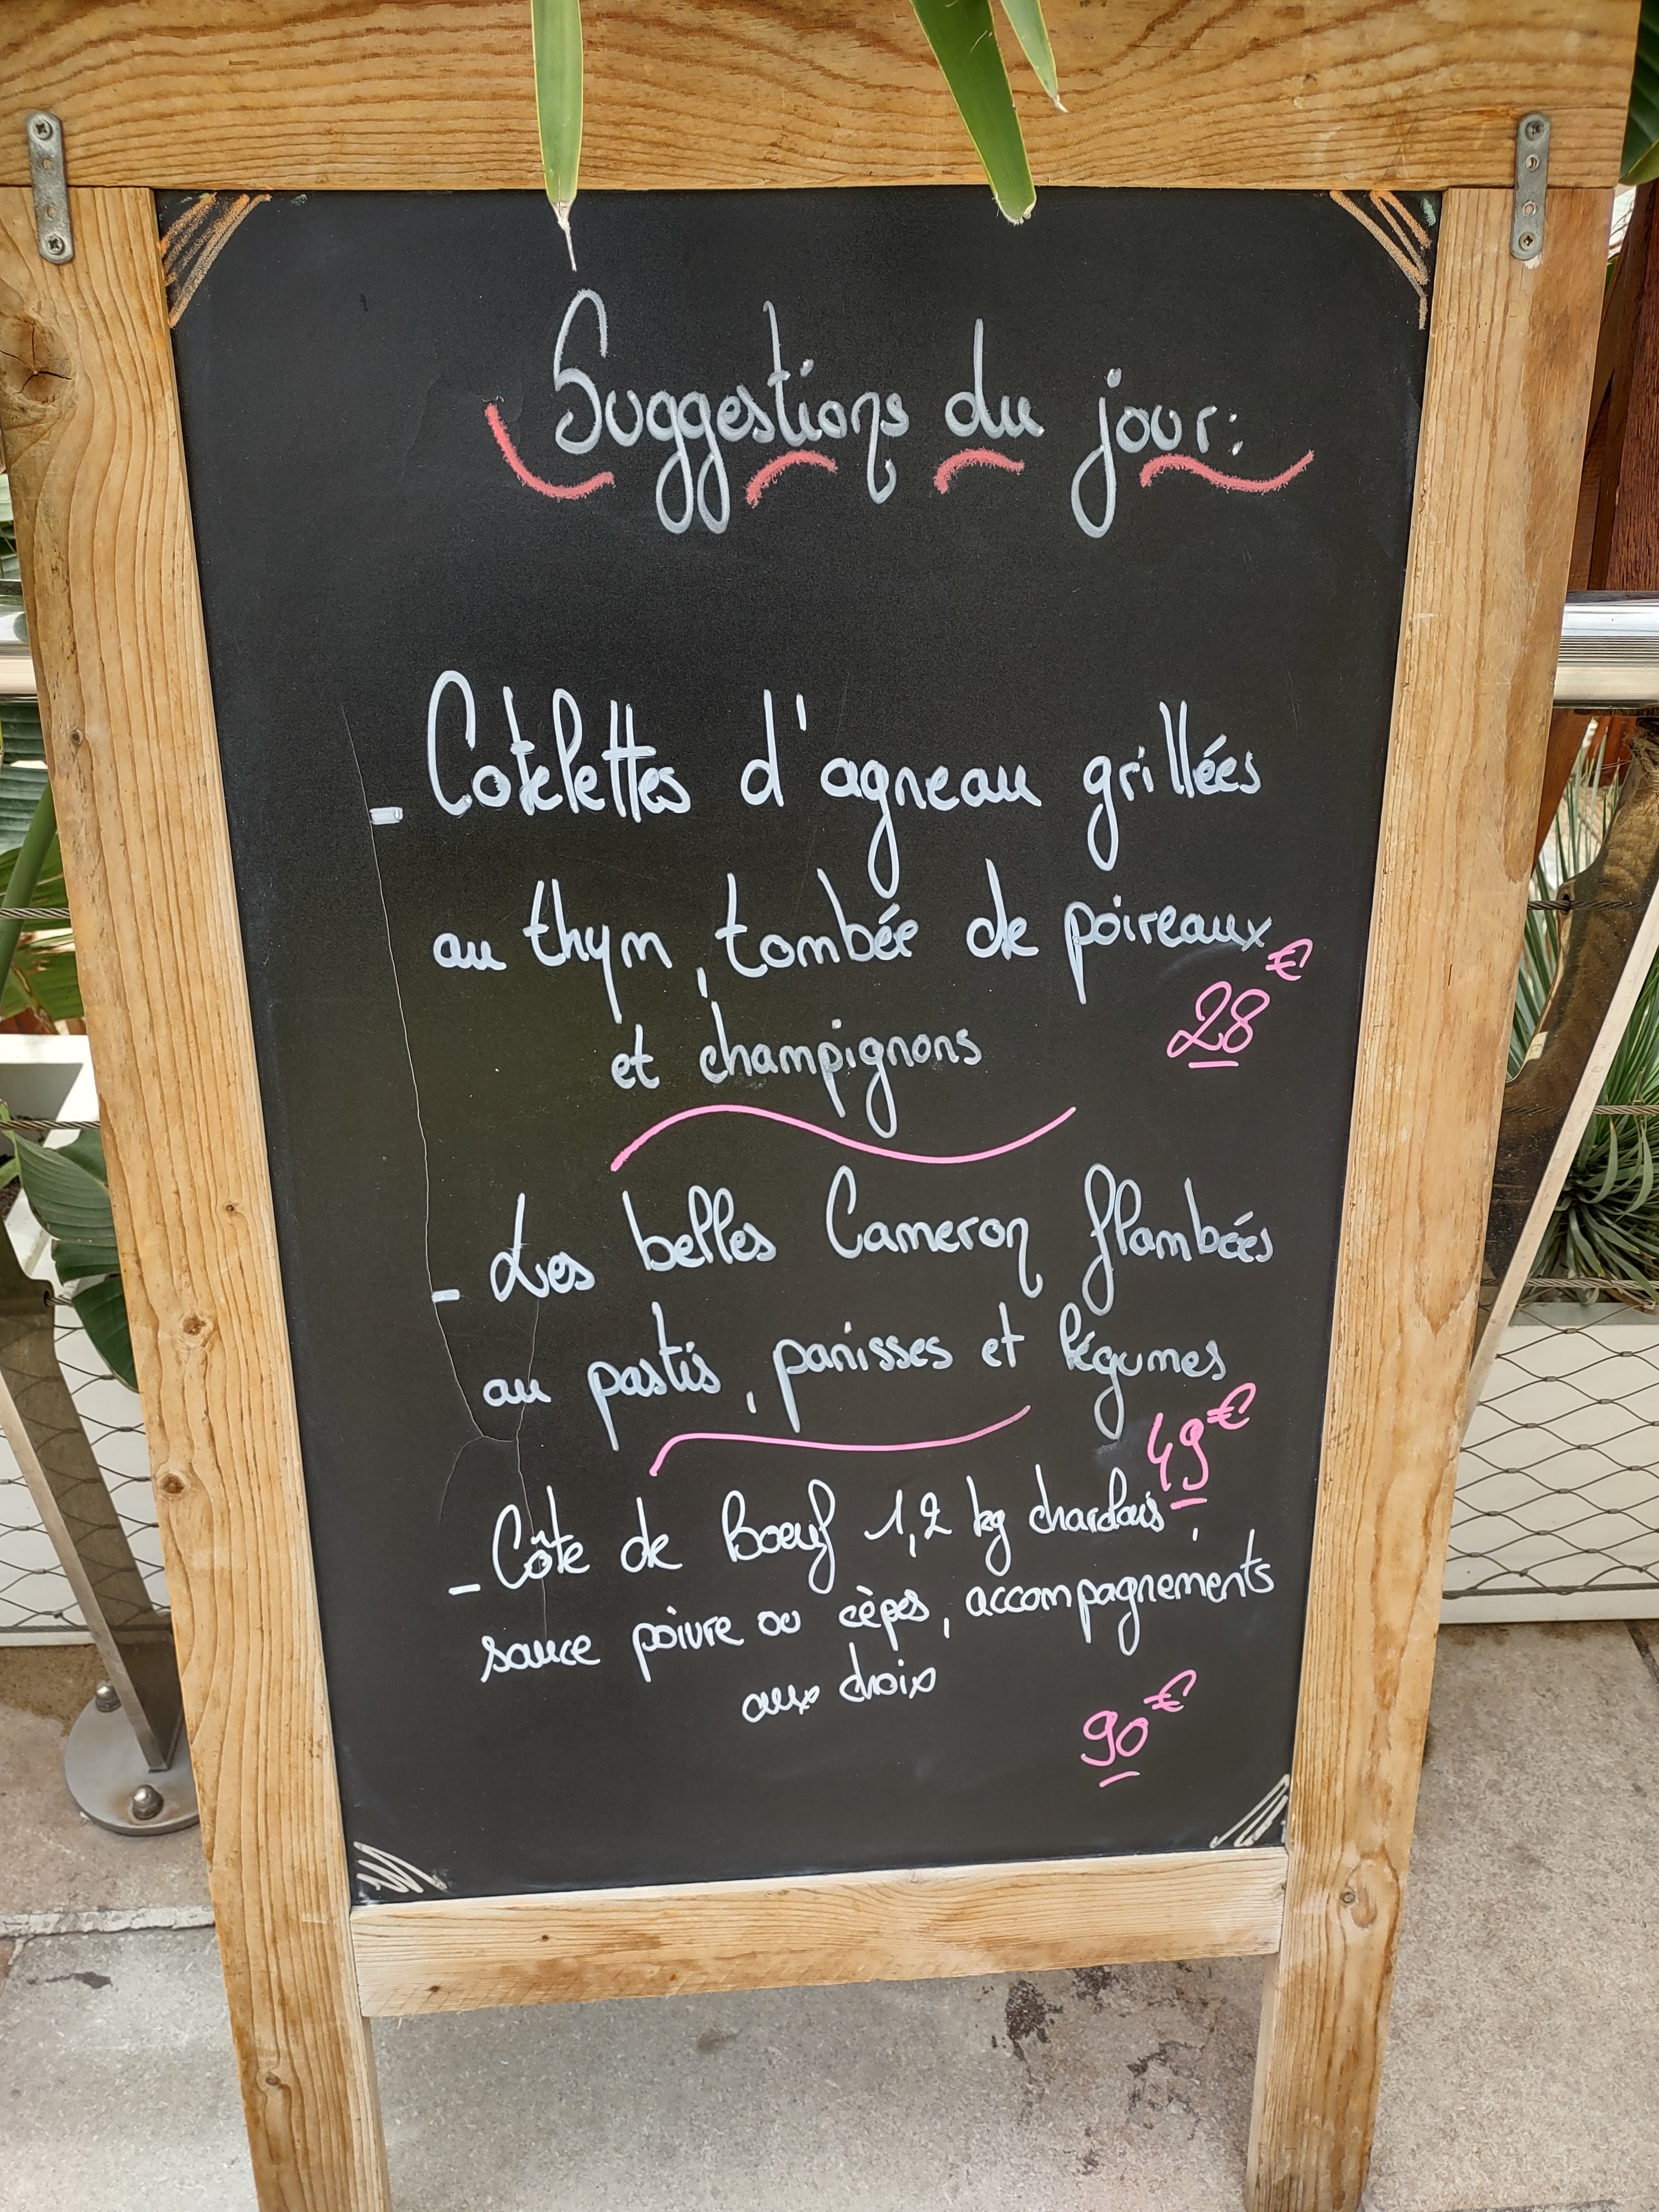 Suggestions du jour:
- Cotelettes d'agneau grillées
au thym, tombée de poireaux
et champignons
28€
- Les belles Cameron flambées
au pastis, panisses et légumes
49€
- Côte de Boeuf 1,2 kg charolais,
sauce poivre ou cèpes, accompagnements
aux choix
90€